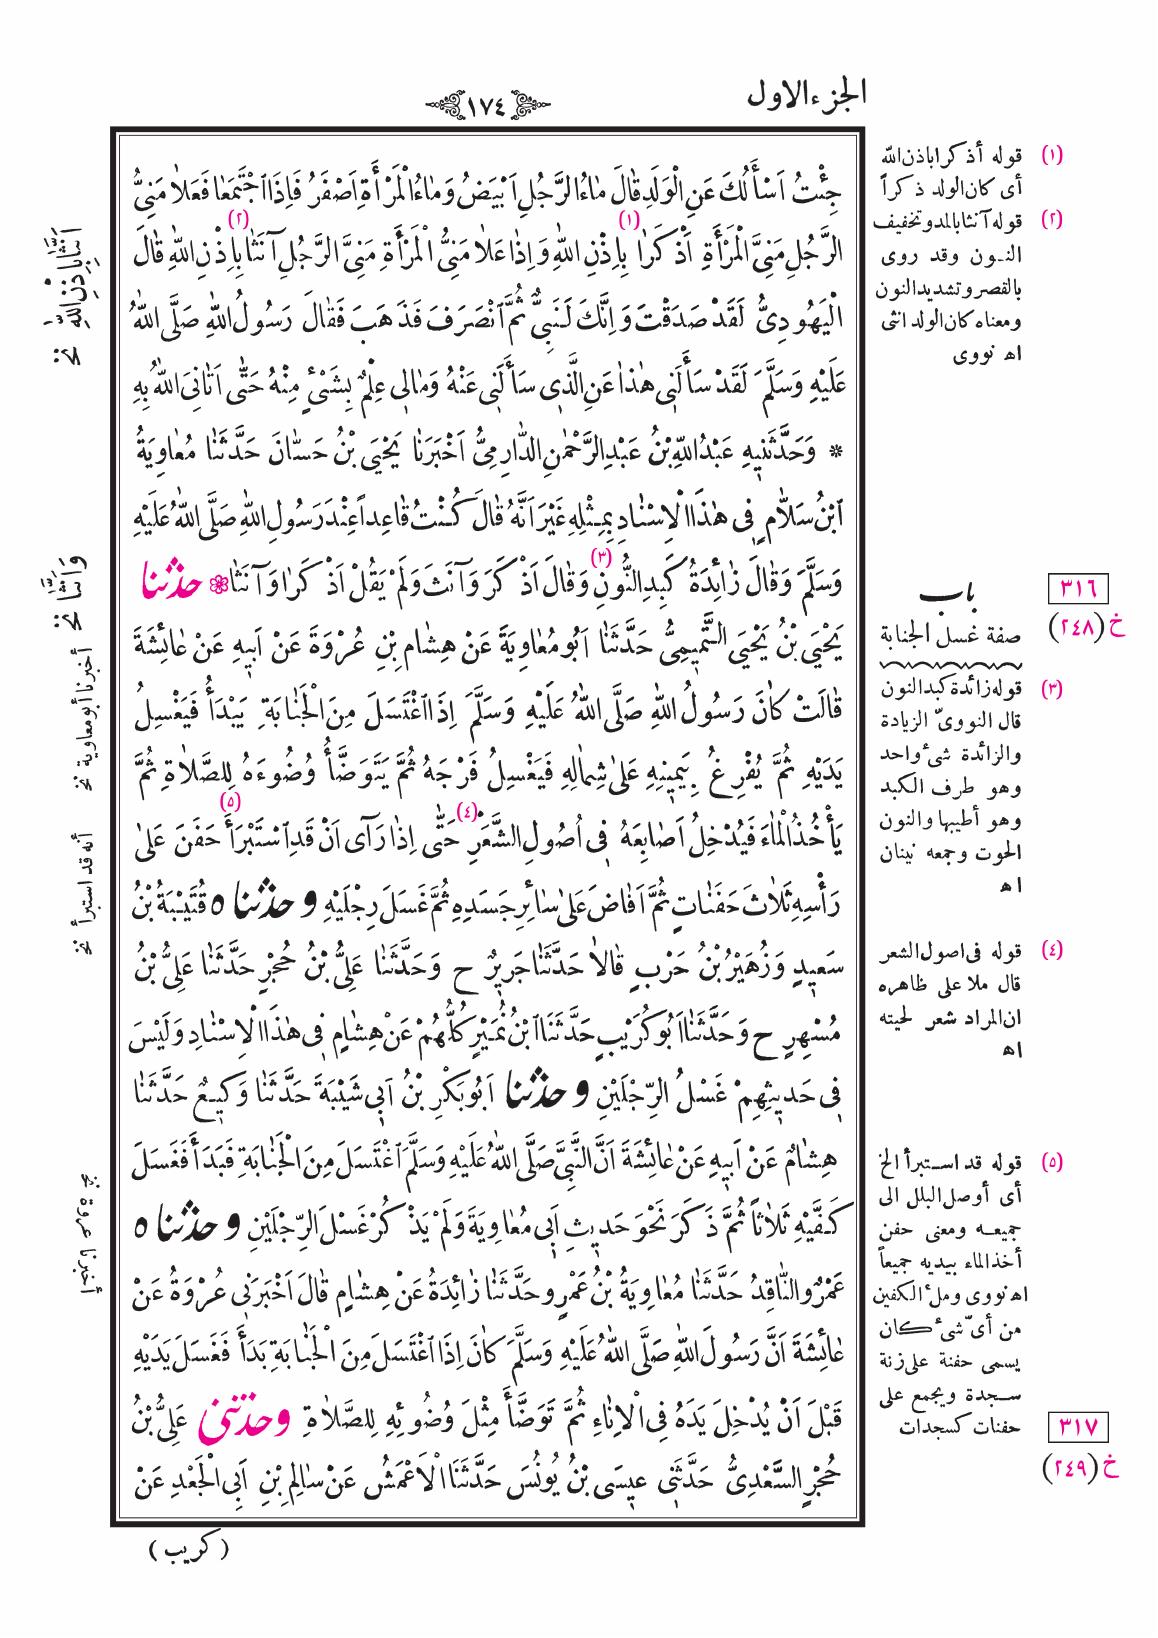 الجزء الاول
١٧٤
جِئْتُ اَسْأَلُكَ عَنِ الْوَلَدِ قَالَ مَاءُ الرَّجُلِ اَبْيَضُ وَمَاءُ الْمَرْأَةِ اَصْفَرُ فَاِذَا اجْتَمَعَا فَعَلَا مَنِيُّ
الرَّجُلِ مَنِيَّ الْمَرْأَةِ اَذْكَرَا (١) بِاِذْنِ اللهِ وَاِذَا عَلَا مَنِيُّ الْمَرْأَةِ مَنِيَّ الرَّجُلِ آنَثَا (٢) بِاِذْنِ اللهِ قَالَ
الْيَهُودِيُّ لَقَدْ صَدَقْتَ وَاِنَّكَ لَنَبِيٌّ ثُمَّ انْصَرَفَ فَذَهَبَ فَقَالَ رَسُولُ اللهِ صَلَّى اللهُ
عَلَيْهِ وَسَلَّمَ لَقَدْ سَأَلَنِي هٰذَا عَنِ الَّذِي سَأَلَنِي عَنْهُ وَمَالِي عِلْمٌ بِشَيْءٍ مِنْهُ حَتَّى اَتَانِيَ اللهُ بِهِ
* وَحَدَّثَنِيهِ عَبْدُ اللهِ بْنُ عَبْدِ الرَّحْمٰنِ الدَّارِمِيُّ اَخْبَرَنَا يَحْيَى بْنُ حَسَّانَ حَدَّثَنَا مُعَاوِيَةُ
ابْنُ سَلَّامٍ فِي هٰذَا الْاِسْنَادِ بِمِثْلِهِ غَيْرَ اَنَّهُ قَالَ كُنْتُ قَاعِداً عِنْدَ رَسُولِ اللهِ صَلَّى اللهُ عَلَيْهِ
وَسَلَّمَ وَقَالَ زَائِدَةُ كَبِدِ النُّونِ (٣) وَقَالَ اَذْكَرَ وَآنَثَ وَلَمْ يَقُلْ اَذْكَرَا وَآنَثَا ❁ حدثنا
يَحْيَى بْنُ يَحْيَى التَّمِيمِيُّ حَدَّثَنَا اَبُو مُعَاوِيَةَ عَنْ هِشَامِ بْنِ عُرْوَةَ عَنْ اَبِيهِ عَنْ عَائِشَةَ
قَالَتْ كَانَ رَسُولُ اللهِ صَلَّى اللهُ عَلَيْهِ وَسَلَّمَ اِذَا اغْتَسَلَ مِنَ الْجَنَابَةِ يَبْدَأُ فَيَغْسِلُ
يَدَيْهِ ثُمَّ يُفْرِغُ بِيَمِينِهِ عَلَى شِمَالِهِ فَيَغْسِلُ فَرْجَهُ ثُمَّ يَتَوَضَّأُ وُضُوءَهُ لِلصَّلَاةِ ثُمَّ
يَأْخُذُ الْمَاءَ فَيُدْخِلُ اَصَابِعَهُ فِي اُصُولِ الشَّعَرِ (٤) حَتَّى اِذَا رَآى اَنْ قَدِ اسْتَبْرَأَ (٥) حَفَنَ عَلَى
رَأْسِهِ ثَلَاثَ حَفَنَاتٍ ثُمَّ اَفَاضَ عَلَى سَائِرِ جَسَدِهِ ثُمَّ غَسَلَ رِجْلَيْهِ وحدثنا ه قُتَيْبَةُ بْنُ
سَعِيدٍ وَزُهَيْرُ بْنُ حَرْبٍ قَالَا حَدَّثَنَا جَرِيرٌ ح وَحَدَّثَنَا عَلِيُّ بْنُ حُجْرٍ حَدَّثَنَا عَلِيُّ بْنُ
مُسْهِرٍ ح وَحَدَّثَنَا اَبُو كُرَيْبٍ حَدَّثَنَا ابْنُ نُمَيْرٍ كُلُّهُمْ عَنْ هِشَامٍ فِي هٰذَا الْاِسْنَادِ وَلَيْسَ
فِي حَدِيثِهِمْ غَسْلُ الرِّجْلَيْنِ وحدثنا اَبُو بَكْرِ بْنُ اَبِي شَيْبَةَ حَدَّثَنَا وَكِيعٌ حَدَّثَنَا
هِشَامٌ عَنْ اَبِيهِ عَنْ عَائِشَةَ اَنَّ النَّبِيَّ صَلَّى اللهُ عَلَيْهِ وَسَلَّمَ اغْتَسَلَ مِنَ الْجَنَابَةِ فَبَدَأَ فَغَسَلَ
كَفَّيْهِ ثَلَاثاً ثُمَّ ذَكَرَ نَحْوَ حَدِيثِ اَبِي مُعَاوِيَةَ وَلَمْ يَذْكُرْ غَسْلَ الرِّجْلَيْنِ وحدثنا ه
عَمْرٌو النَّاقِدُ حَدَّثَنَا مُعَاوِيَةُ بْنُ عَمْرٍو حَدَّثَنَا زَائِدَةُ عَنْ هِشَامٍ قَالَ اَخْبَرَنِي عُرْوَةُ عَنْ
عَائِشَةَ اَنَّ رَسُولَ اللهِ صَلَّى اللهُ عَلَيْهِ وَسَلَّمَ كَانَ اِذَا اغْتَسَلَ مِنَ الْجَنَابَةِ بَدَأَ فَغَسَلَ يَدَيْهِ
قَبْلَ اَنْ يُدْخِلَ يَدَهُ فِي الْاِنَاءِ ثُمَّ تَوَضَّأَ مِثْلَ وُضُوئِهِ لِلصَّلَاةِ وحدثنى عَلِيُّ بْنُ
حُجْرٍ السَّعْدِيُّ حَدَّثَنِي عِيسَى بْنُ يُونُسَ حَدَّثَنَا الْاَعْمَشُ عَنْ سَالِمِ بْنِ اَبِي الْجَعْدِ عَنْ
(كريب)
(١) قوله أذكرا باذن الله
أى كان الولد ذكراً
(٢) قوله آنثا بالمد وتخفيف
النون وقد روى
بالقصر وتشديد النون
ومعناه كان الولد انثى
اه نووى
٣١٦
باب
خ (٢٤٨)
صفة غسل الجنابة
(٣) قوله زائدة كبد النون
قال النووىّ الزيادة
والزائدة شىء واحد
وهو طرف الكبد
وهو أطيبها والنون
الحوت وجمعه نينان
اه
(٤) قوله فى اصول الشعر
قال ملا على ظاهره
ان المراد شعر لحيته
اه
(٥) قوله قد استبرأ الخ
أى أوصل البلل الى
جميعه ومعنى حفن
أخذ الماء بيديه جميعاً
اه نووى وملء الكفين
من أىّ شىء كان
يسمى حفنة على زنة
سجدة ويجمع على
حفنات كسجدات
٣١٧
خ (٢٤٩)
اَنَّثَا بِاِذْنِ اللهِ نخ
وَاَنَّثَا نخ
أخبرنا أبو معاوية نخ
أنه قد استبرأ نخ
أخبرنا عروة نخ